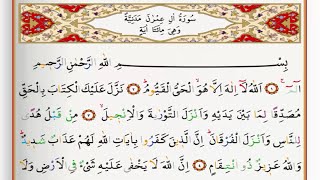 سُورَةُ اٰلِ عِمْرٰنَ مَدَنِيَّةٌ
وَهِىَ مِائَتَا اٰيَةٍ
بِسْمِ اللّٰهِ الرَّحْمٰنِ الرَّحٖيمِ
الٓمٓۚ ﴿١﴾ اَللّٰهُ لَٓا اِلٰهَ اِلَّا هُوَۙ الْحَىُّ الْقَيُّومُۜ ﴿٢﴾ نَزَّلَ عَلَيْكَ الْكِتَابَ بِالْحَقِّ
مُصَدِّقًا لِمَا بَيْنَ يَدَيْهِ وَاَنْزَلَ التَّوْرٰيةَ وَالْاِنْجٖيلَۙ ﴿٣﴾ مِنْ قَبْلُ هُدًى
لِلنَّاسِ وَاَنْزَلَ الْفُرْقَانَۜ اِنَّ الَّذٖينَ كَفَرُوا بِاٰيَاتِ اللّٰهِ لَهُمْ عَذَابٌ شَدٖيدٌۜ
وَاللّٰهُ عَزٖيزٌ ذُو انْتِقَامٍ ﴿٤﴾ اِنَّ اللّٰهَ لَا يَخْفٰى عَلَيْهِ شَىْءٌ فِى الْاَرْضِ وَلَا